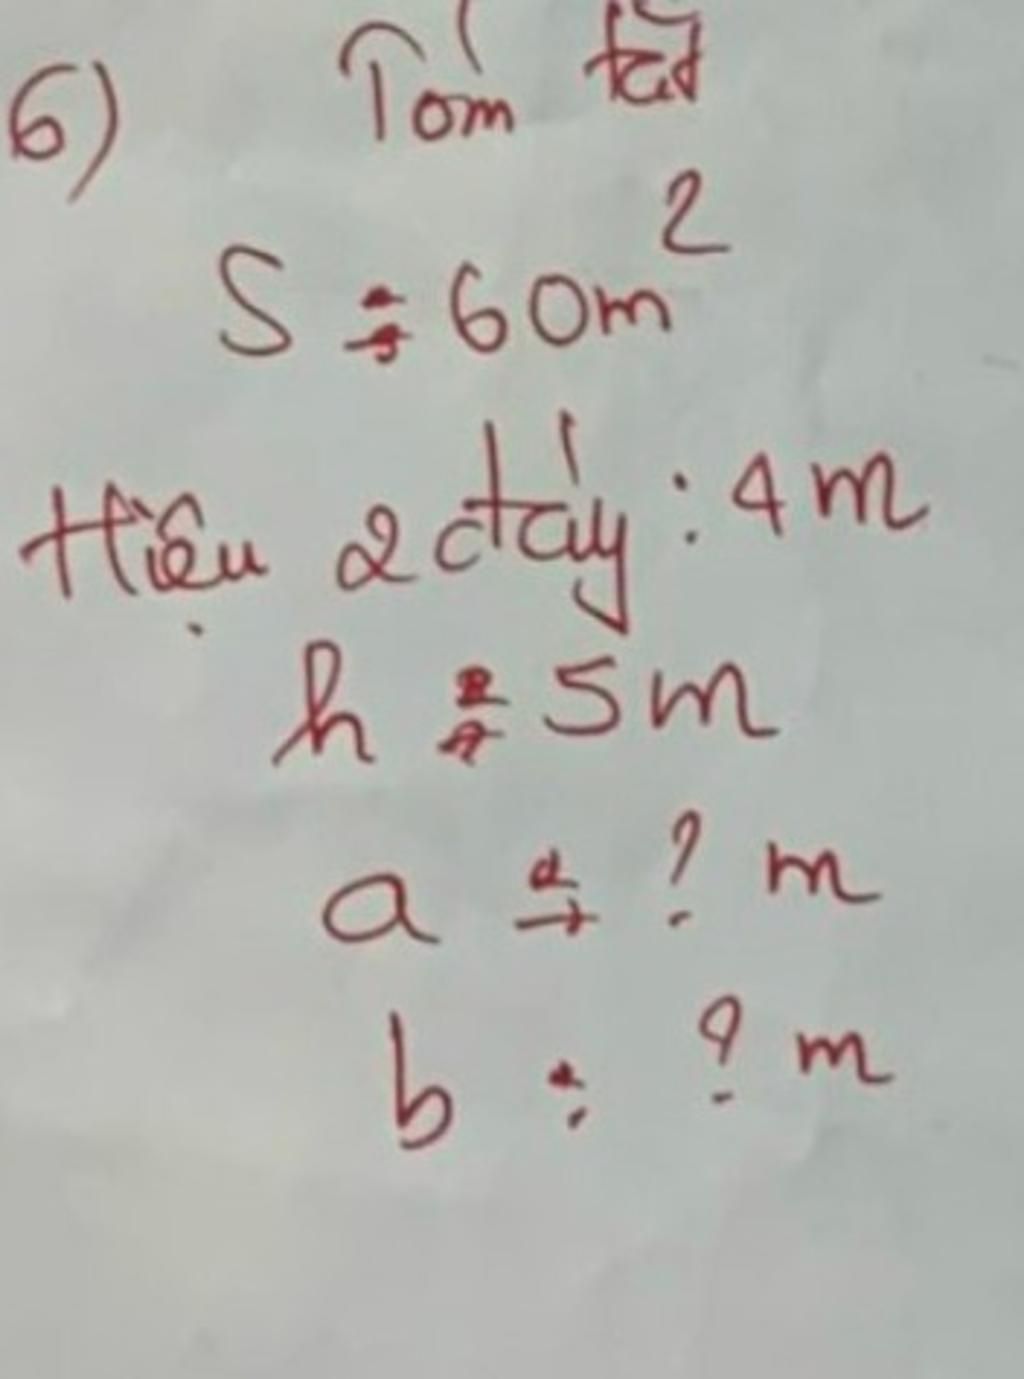 6) Tóm tắt
S : 60m²
Hiệu 2 đáy : 4m
h : 5m
a : ? m
b : ? m